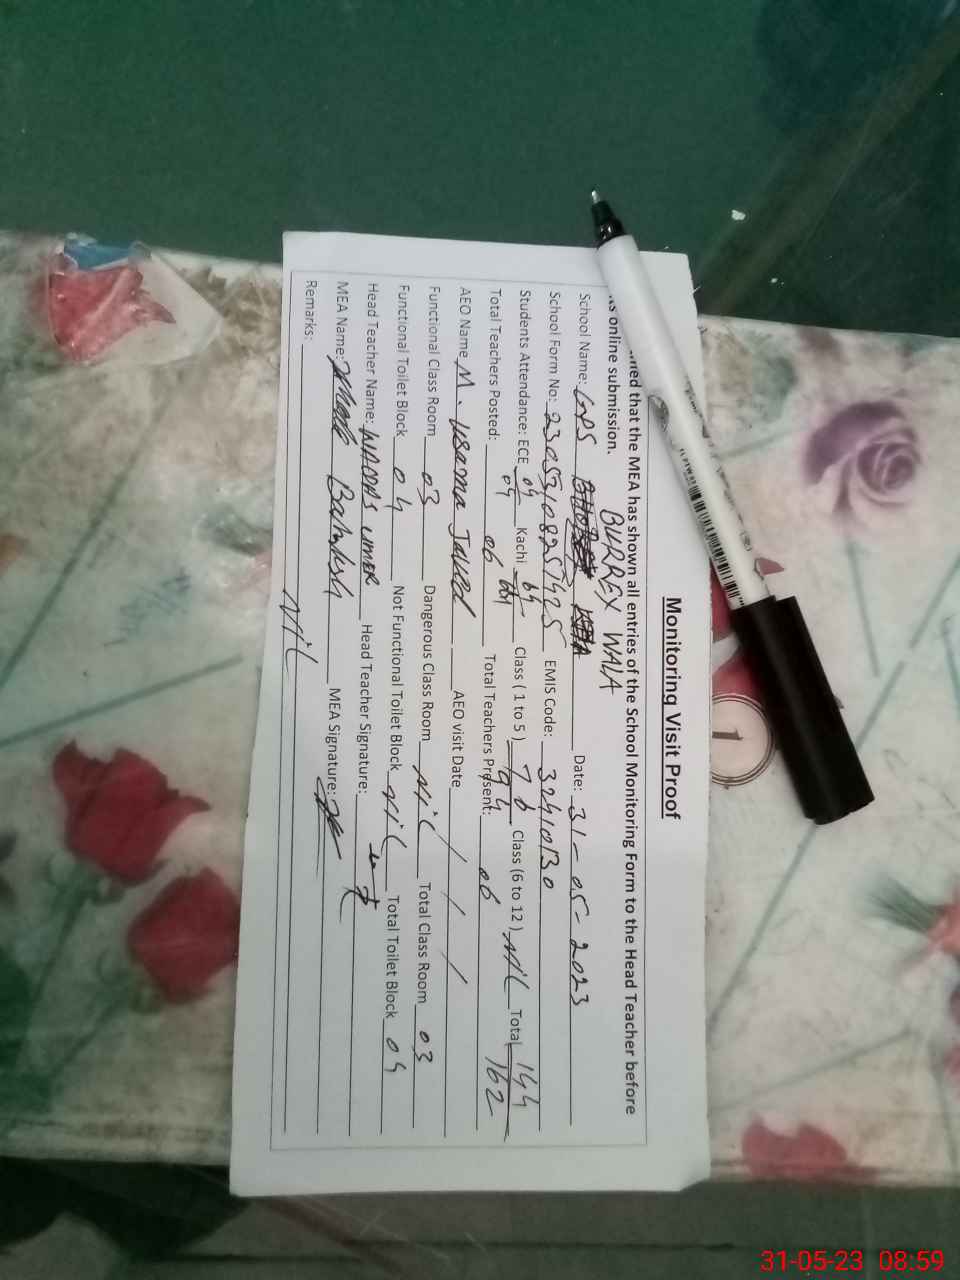 Monitoring Visit Proof
med that the MEA has shown all entries of the School Monitoring Form to the Head Teacher before
is online submission.
BURREX WALA
School Name: GPS Date: 31-05-2023
School Form No: 23053108257425 EMIS Code: 32410130
Students Attendance: ECE 04/04 Kachi 64/64 Class ( 1 to 5 ) 76/94 Class (6 to 12 ) Nil Total 144/162
Total Teachers Posted: 06 Total Teachers Present: 06
AEO Name M. Usama Javed AEO visit Date / / /
Functional Class Room 03 Dangerous Class Room Nil Total Class Room 03
Functional Toilet Block 04 Not Functional Toilet Block Nil Total Toilet Block 04
Head Teacher Name: WAQAS UMER Head Teacher Signature:
MEA Name: Bakhsh MEA Signature:
Remarks: Nil
1
31-05-23 08:59